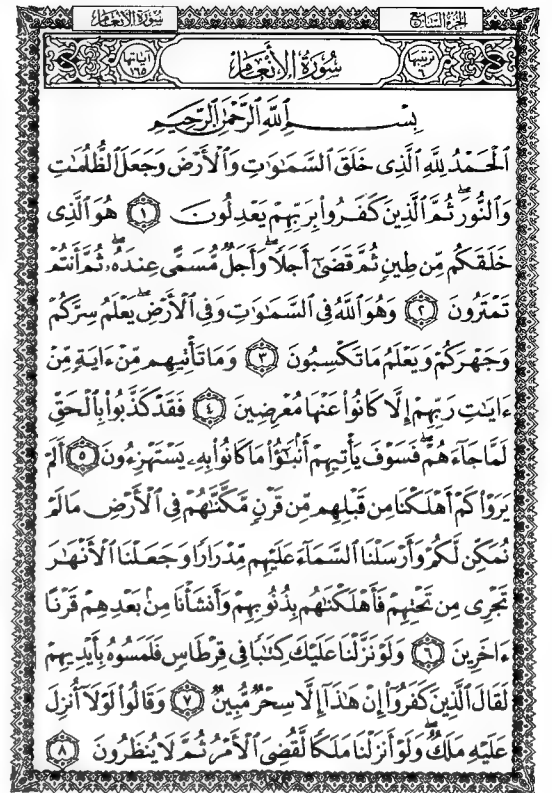 الجزء السابع
سورة الأنعام
ترتيبها ٦
سُورَةُ الأنعَامِ
آياتها ١٦٥
بِسْمِ اللَّهِ الرَّحْمَٰنِ الرَّحِيمِ
الْحَمْدُ لِلَّهِ الَّذِي خَلَقَ السَّمَاوَاتِ وَالْأَرْضَ وَجَعَلَ الظُّلُمَاتِ
وَالنُّورَ ۖ ثُمَّ الَّذِينَ كَفَرُوا بِرَبِّهِمْ يَعْدِلُونَ ١ هُوَ الَّذِي
خَلَقَكُم مِّن طِينٍ ثُمَّ قَضَىٰ أَجَلًا ۖ وَأَجَلٌ مُّسَمًّى عِندَهُ ۖ ثُمَّ أَنتُمْ
تَمْتَرُونَ ٢ وَهُوَ اللَّهُ فِي السَّمَاوَاتِ وَفِي الْأَرْضِ ۖ يَعْلَمُ سِرَّكُمْ
وَجَهْرَكُمْ وَيَعْلَمُ مَا تَكْسِبُونَ ٣ وَمَا تَأْتِيهِم مِّنْ ءَايَةٍ مِّنْ
ءَايَاتِ رَبِّهِمْ إِلَّا كَانُوا عَنْهَا مُعْرِضِينَ ٤ فَقَدْ كَذَّبُوا بِالْحَقِّ
لَمَّا جَاءَهُمْ ۖ فَسَوْفَ يَأْتِيهِمْ أَنبَاءُ مَا كَانُوا بِهِ يَسْتَهْزِءُونَ ٥ أَلَمْ
يَرَوْا كَمْ أَهْلَكْنَا مِن قَبْلِهِم مِّن قَرْنٍ مَّكَّنَّاهُمْ فِي الْأَرْضِ مَا لَمْ
نُمَكِّن لَّكُمْ وَأَرْسَلْنَا السَّمَاءَ عَلَيْهِم مِّدْرَارًا وَجَعَلْنَا الْأَنْهَارَ
تَجْرِي مِن تَحْتِهِمْ فَأَهْلَكْنَاهُم بِذُنُوبِهِمْ وَأَنشَأْنَا مِن بَعْدِهِمْ قَرْنًا
ءَاخَرِينَ ٦ وَلَوْ نَزَّلْنَا عَلَيْكَ كِتَابًا فِي قِرْطَاسٍ فَلَمَسُوهُ بِأَيْدِيهِمْ
لَقَالَ الَّذِينَ كَفَرُوا إِنْ هَٰذَا إِلَّا سِحْرٌ مُّبِينٌ ٧ وَقَالُوا لَوْلَا أُنزِلَ
عَلَيْهِ مَلَكٌ ۖ وَلَوْ أَنزَلْنَا مَلَكًا لَّقُضِيَ الْأَمْرُ ثُمَّ لَا يُنظَرُونَ ٨